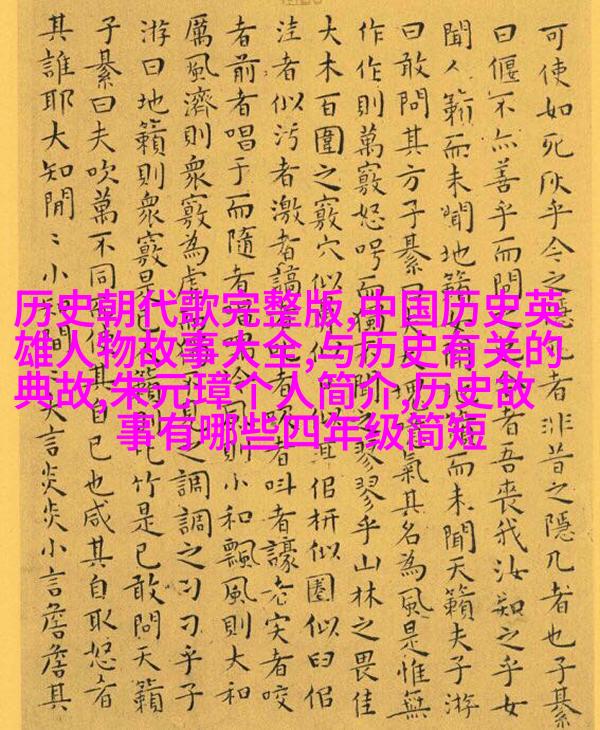 可使如死灰乎今之隱者非昔之隱几者也子綦
曰偃不亦善乎而問之者吾喪我汝知之乎女
聞人籟而未聞地籟而未聞天籟夫子游
曰敢問其方子綦曰氣其名為風是惟無
作作則萬竅怒呺而獨聞之翏翏乎山林之畏佳
大木百圍之竅穴似佀枅似圈似臼佀
洼者似污者激者謞者者叫者譹者宎者咬
者前者唱于而隨者則小和飄風則大和
厲風濟則眾竅為虛之調調之刁刁乎子
游曰地籟則眾竅是已籟則比竹是已敢問天籟
子綦曰夫吹萬不同使其自己也咸其自取怒者
其誰耶大知閒〻小閒〻大言炎炎小言詹詹其
历史朝代歌完整版,中国历史英
雄人物故事大全,与历史有关的
典故,朱元璋个人简介,历史故
事有哪些四年级简短